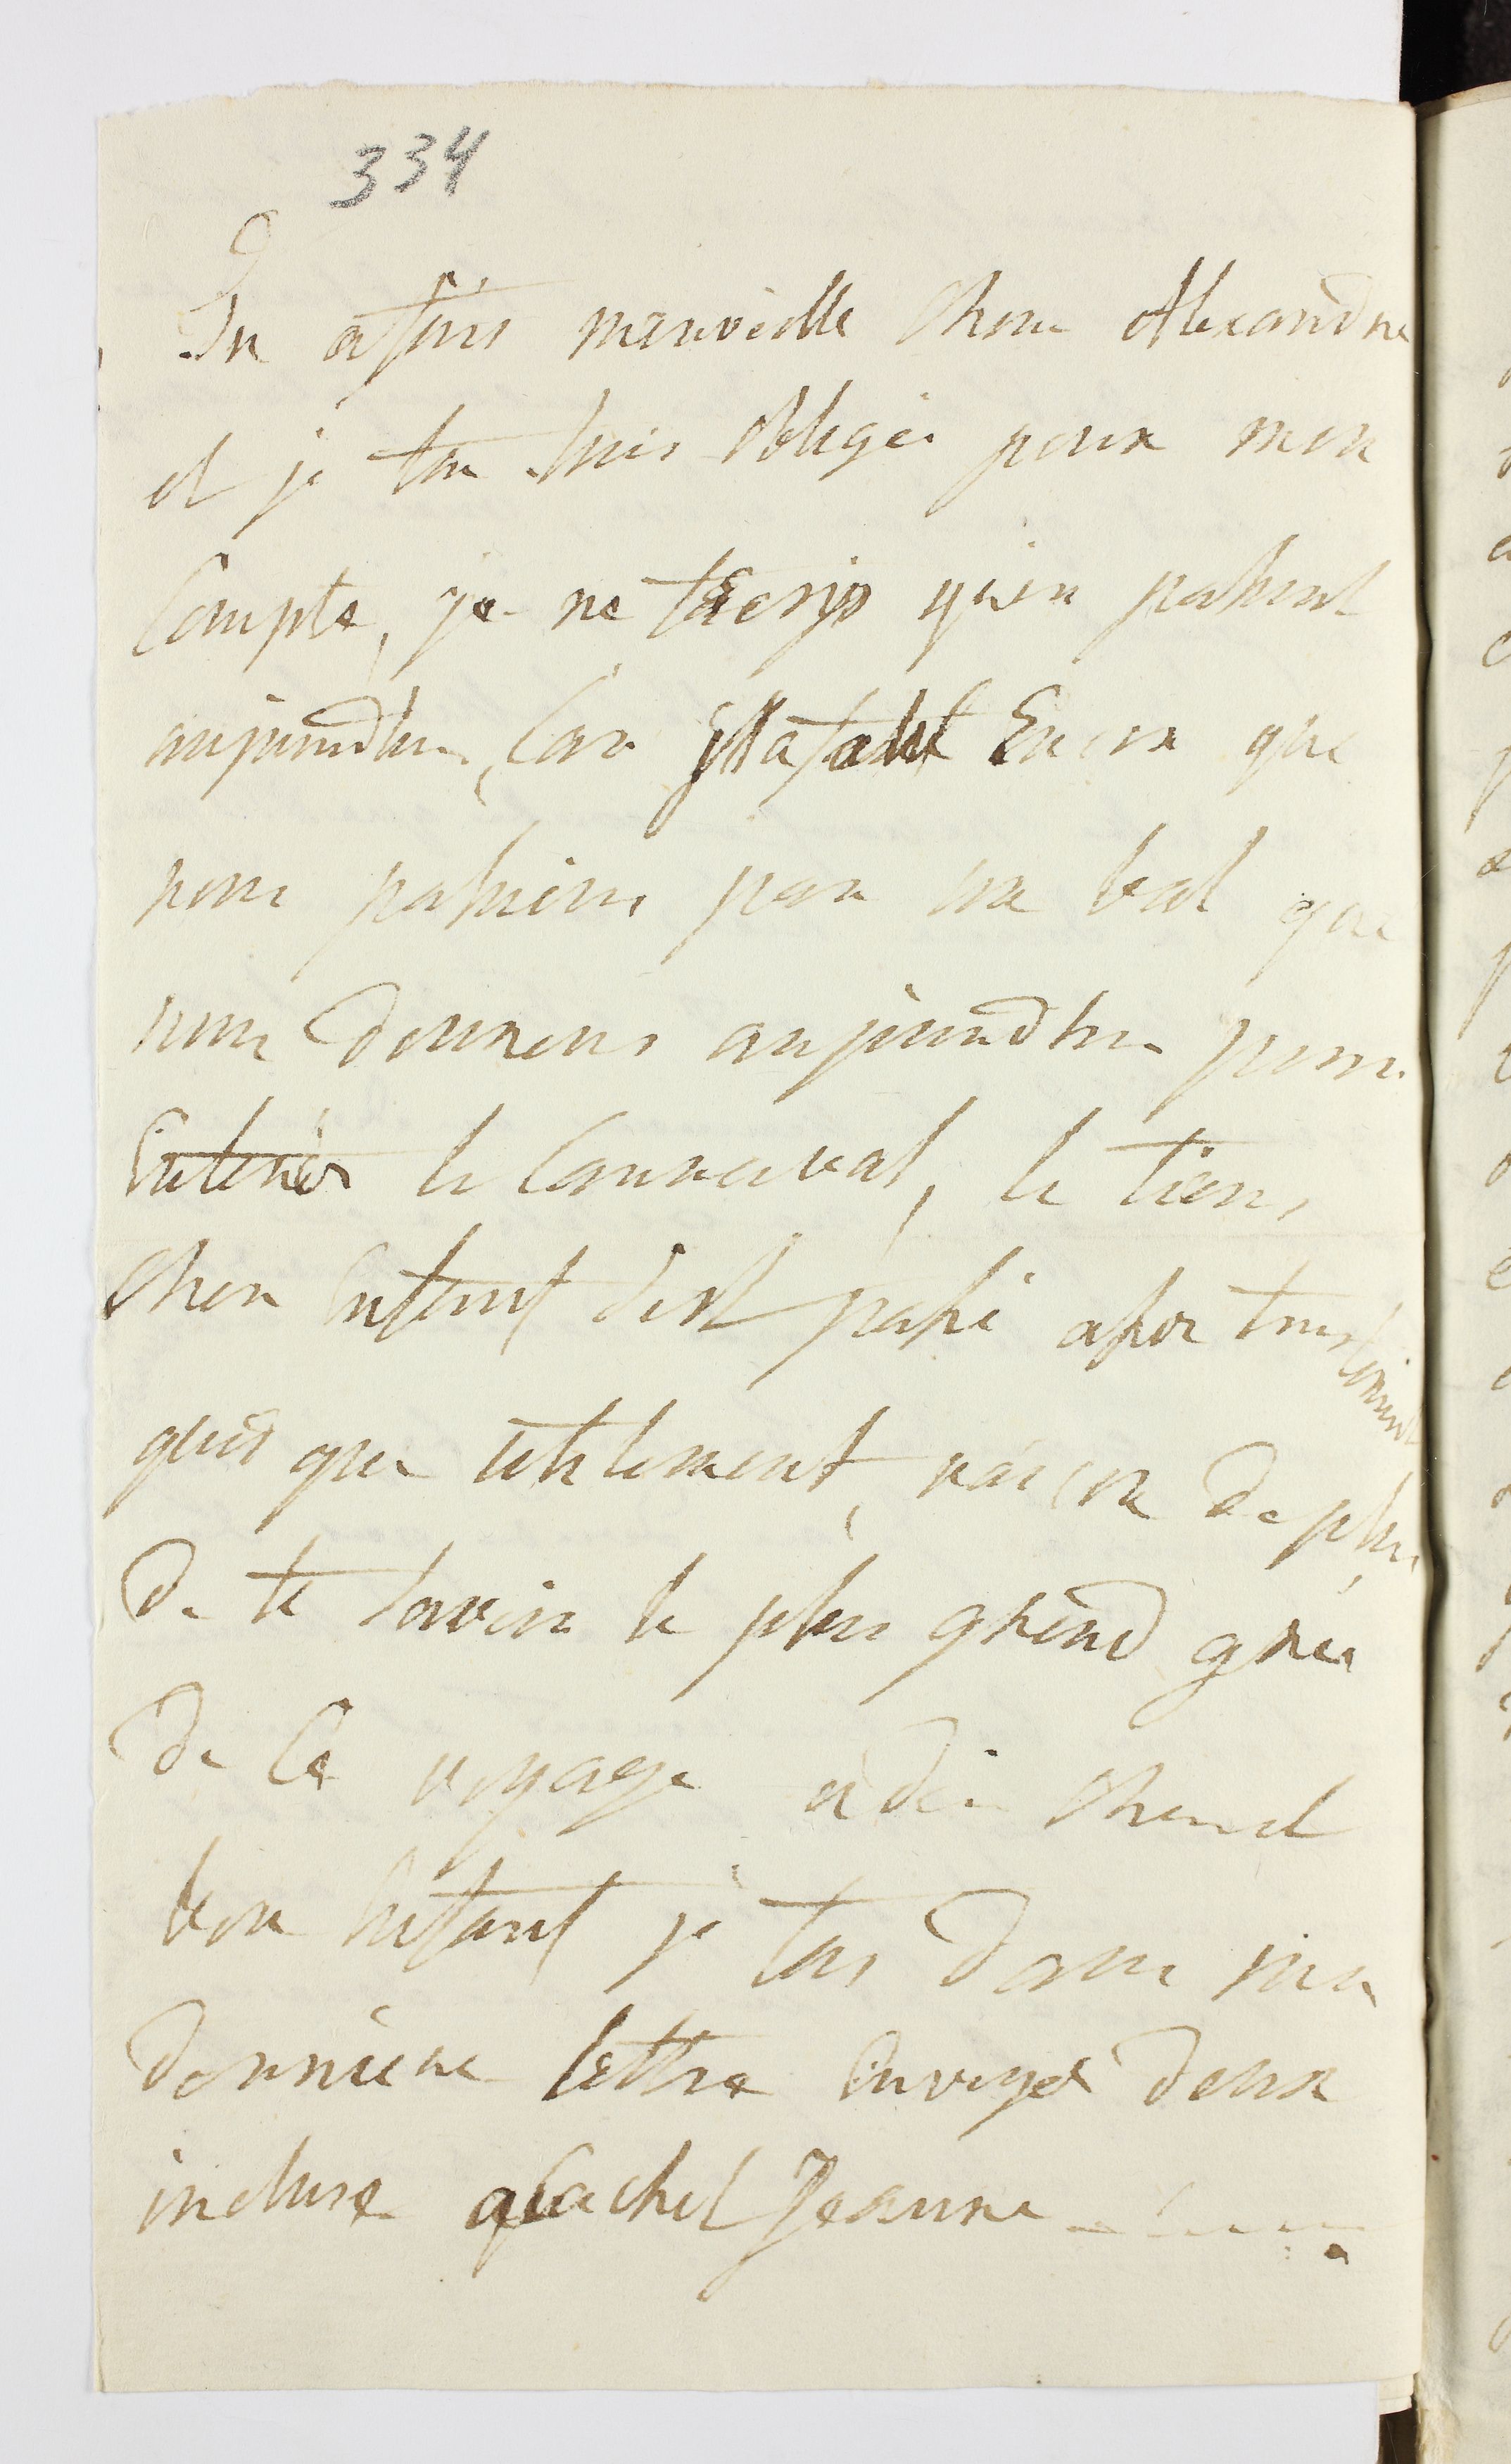 334
Tu a fais merveille cher Alexandre
et je t'en suis obligée pour mon
Compte, je ne t'écrijs qu'en passent
aujourdhui, Car il a falut Encore que
nous passions par un bal que
nous donnons aujourdhui pour
Enterrer le Carneval, le tien,
cher Enfant s'est passé assez tristement
quoi que utilement, raison de plus
de te savoir le plus grend gré
de Ce voyage adieu cher et
bon Enfant je t'es dans ma
dernière lettre Envoyer deux
incluse a Rachel Jeanne